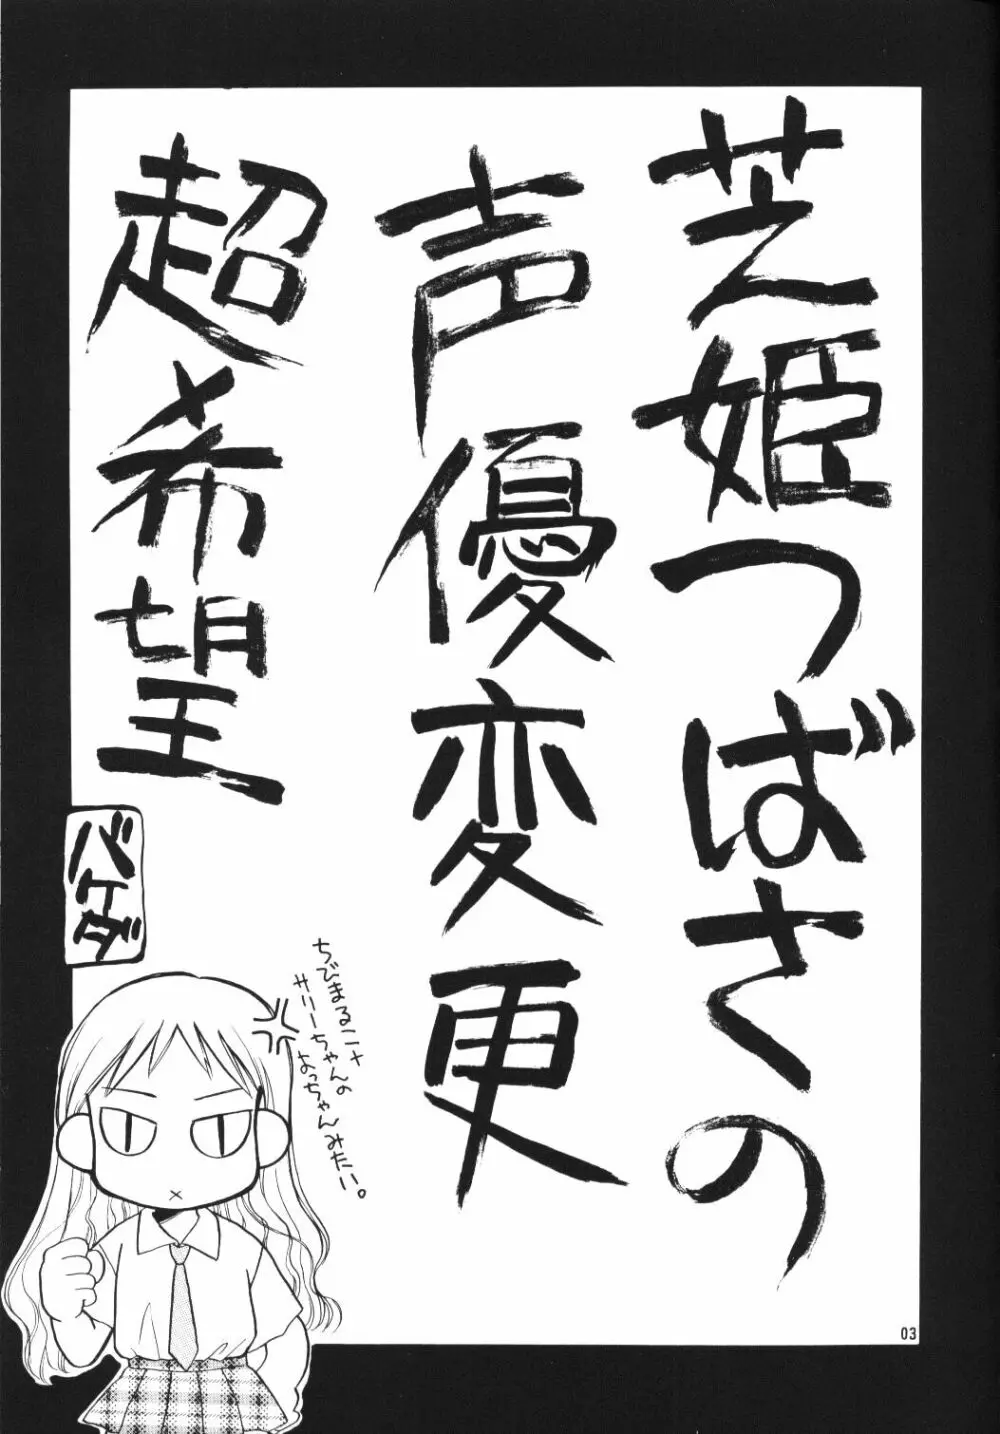 芝姫つばさの
声優変更
超希望
バケダ
ちびまるこ+
サリーちゃんの
よっちゃんみたい。
03